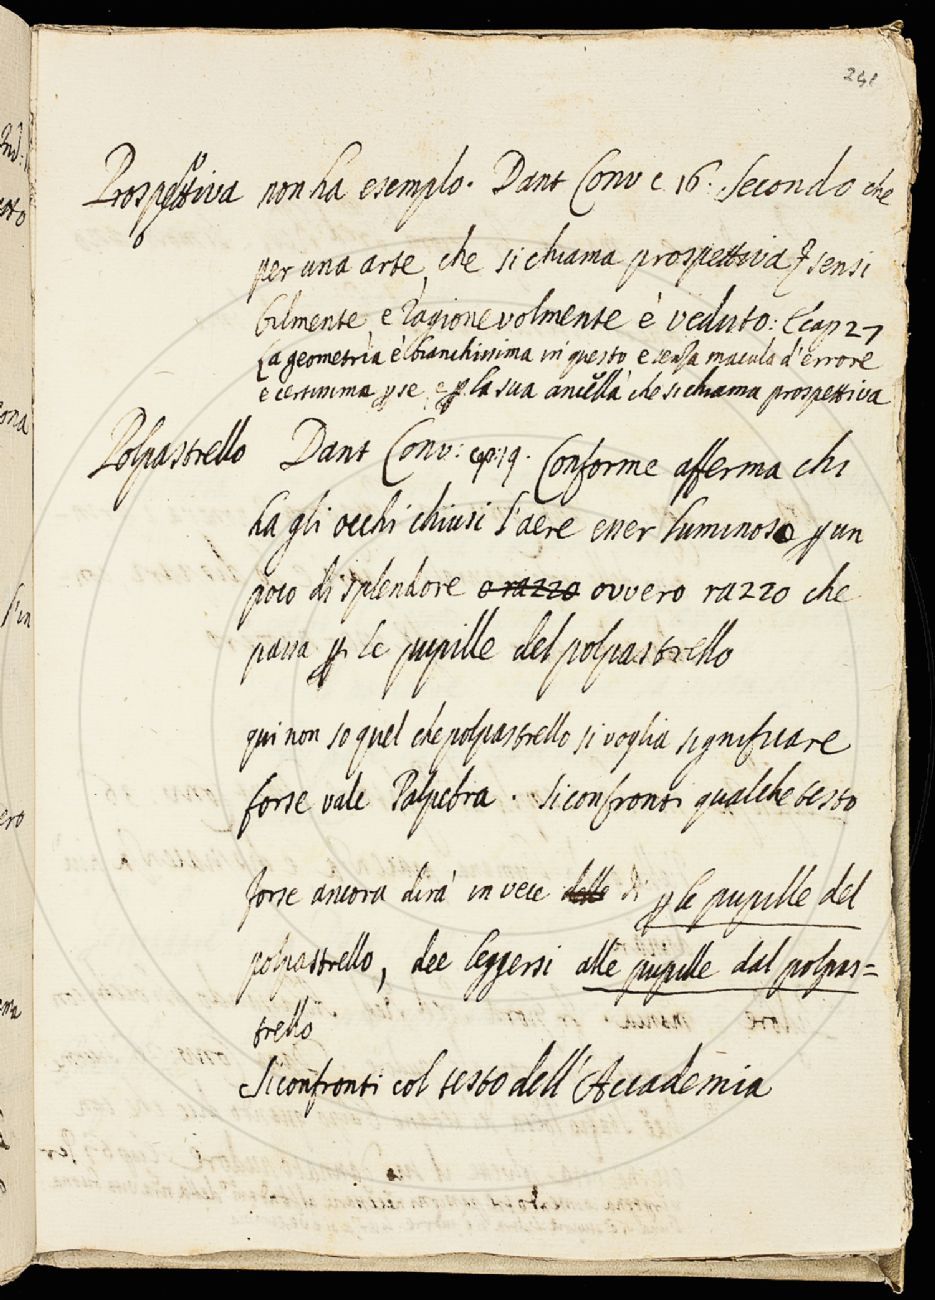 241
Prospettiva non ha esempio. Dant Conv c. 16. Secondo che
per una arte, che si chiama prospettiva sensi
bilmente e ragionevolmente è veduto: E cap 27
La geometria è bianchissima in questo e senza macula d'errore
e certissima p se e p la sua ancella che si chiama prospettiva
Polpastrello Dant Conv: cap: 19. Conforme afferma chi
ha gli occhi chiusi l'aere esser luminoso p un
poco di splendore o razzo ovvero razzo che
passa p le pupille del polpastrello
qui non so quel che polpastrello si voglia significare
forse vale Palpebra. si confronti qualche testo
forse ancora dirà in vece delle di p le pupille del
polpastrello, dee leggersi alle pupille dal polpas=
trello
Si confronti col testo dell'Accademia